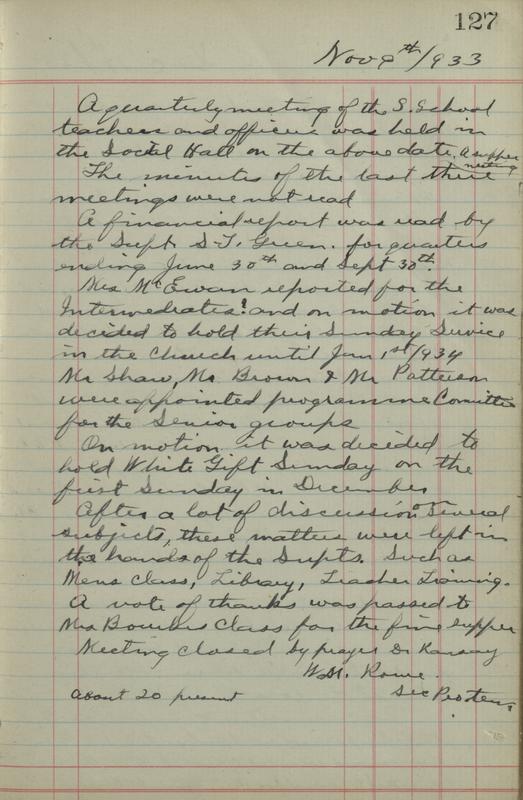 127
Nov 9th/933
A quarterly meeting of the S. School
teachers and officers was held in
the Social Hall on the above date. A supper
meeting
The minutes of the last three
meetings were not read
A financial report was read by
the Supt S. T. Green. for quarters
ending June 30th and Sept 30th.
Mrs. McEwan reported for the
Intermediates. and on motion it was
decided to hold their Sunday Service
in the Church until Jan 1st/934
Mr Shaw, Mr. Brown & Mr Patterson
were appointed programme Comittee
for the Senior groups
On motion it was decided to
hold White Gift Sunday on the
first Sunday in December
After a lot of discussion on several
subjects, these matters were left in
the hands of the Supts. Such as
Mens Class, Library, Teacher Training.
A vote of thanks was passed to
Mrs Class for the fine supper
Meeting closed by prayer Dr Ramsay
W. M. Rowe.
Sec Protem
about 20 present